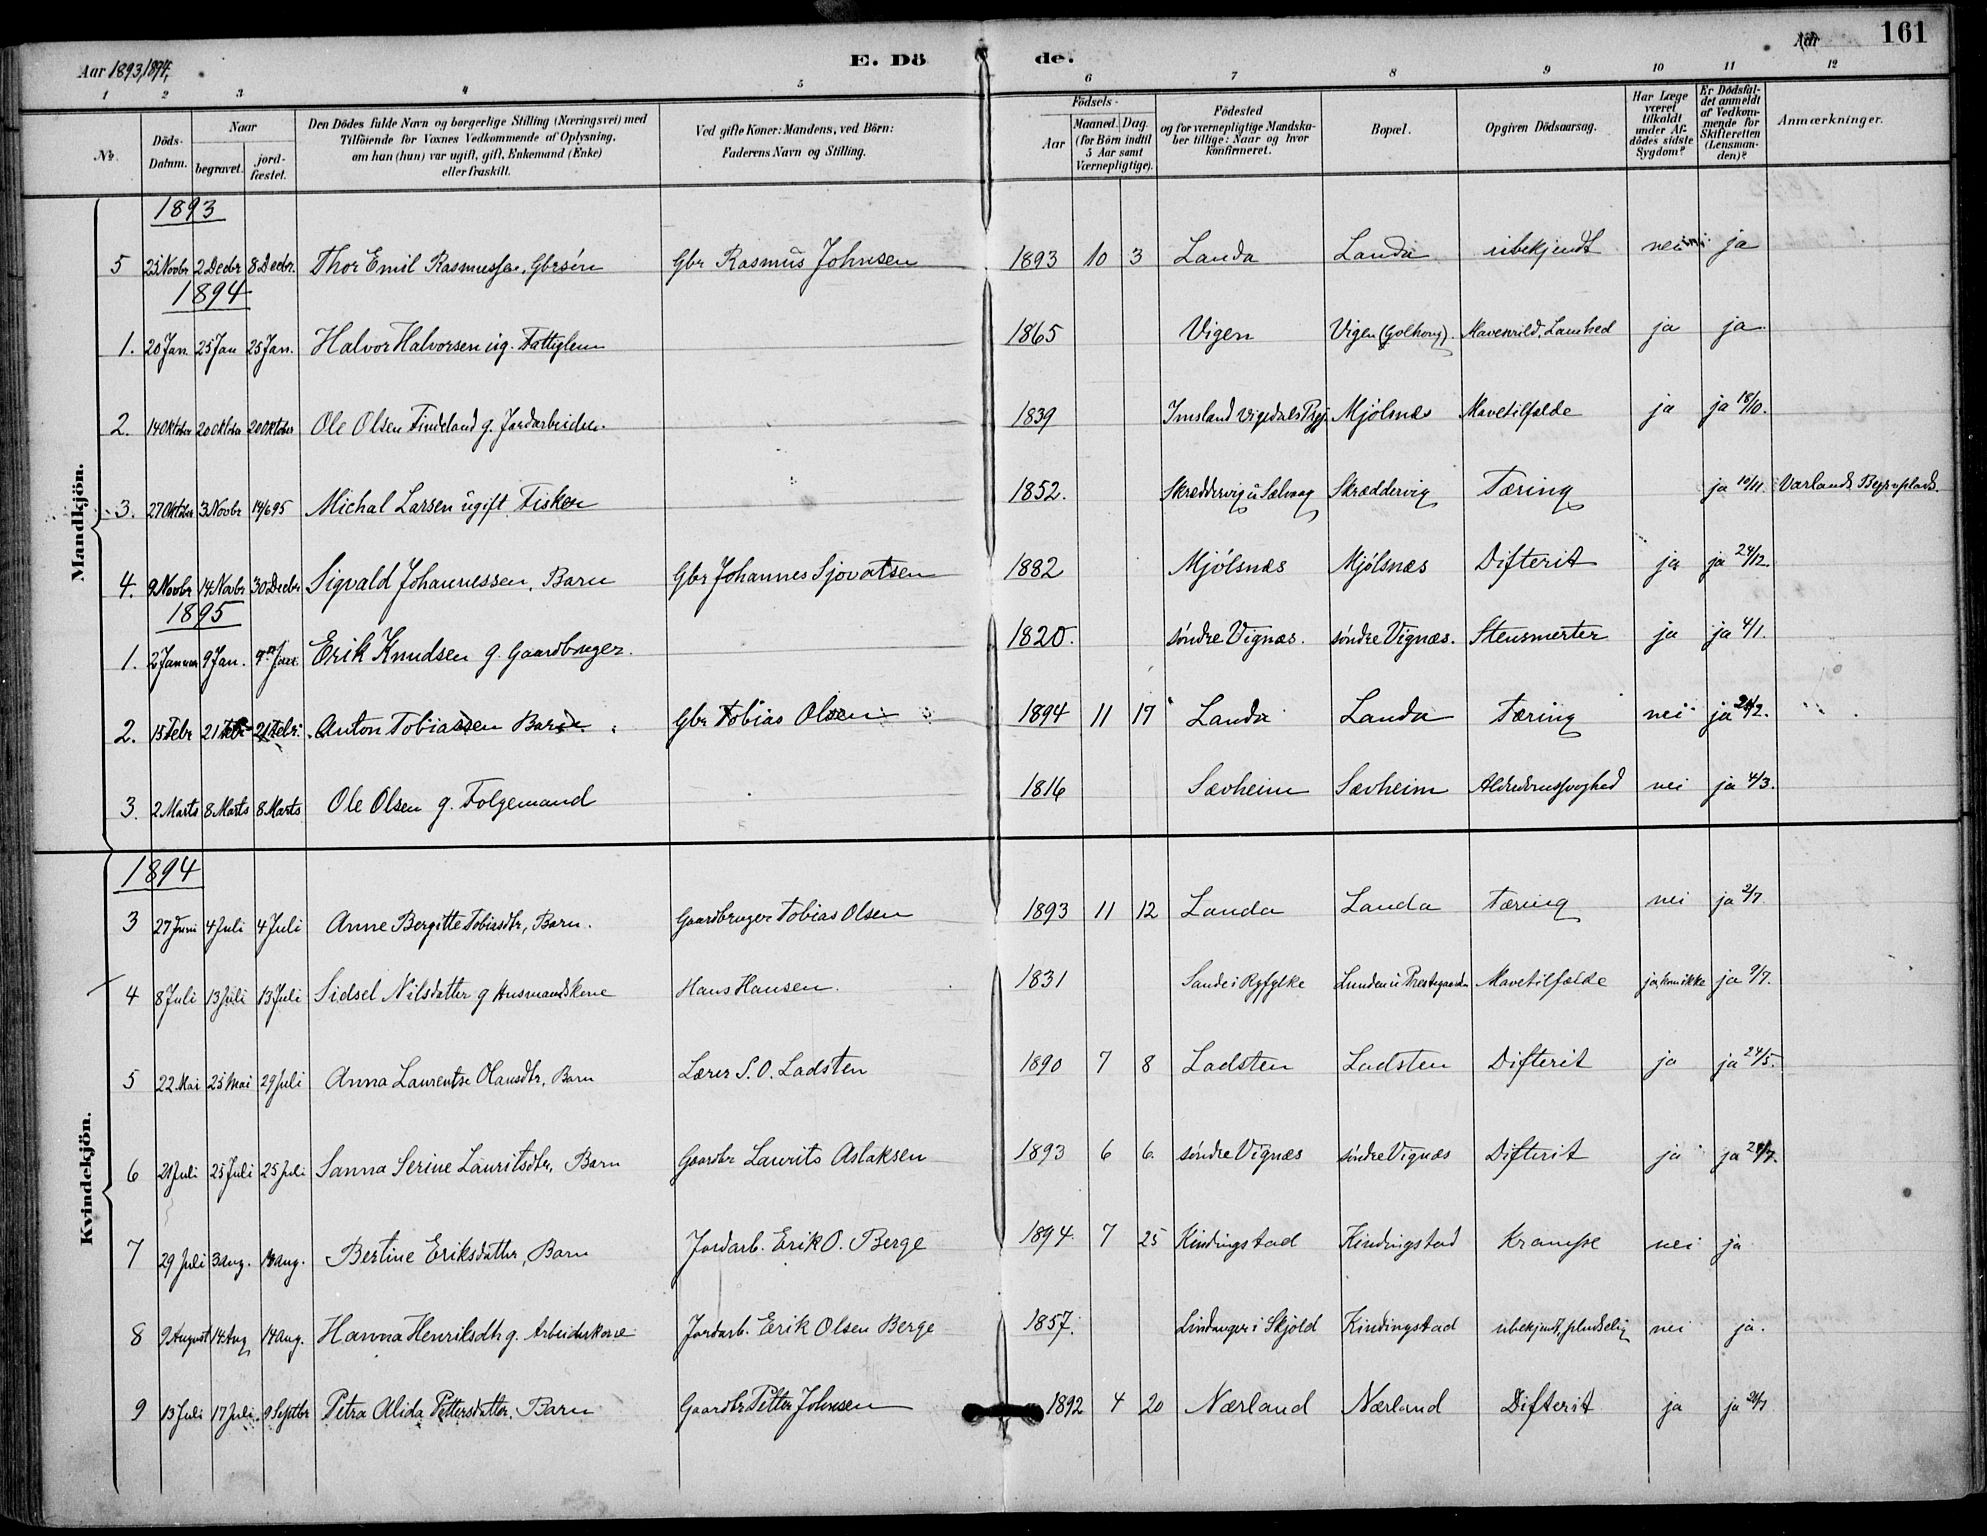 Aar 1893, 1894, E. Dö de. Aar 161
1 2 3 4 5 6 7 8 9 10 11 12
№ Döds-Datum. Naar begravet. jordfæstet. Den Dödes fulde Navn og borgerlige Stilling (Næringsvei) med Tilföiende for Voxnes Vedkommende af Oplysning, om han (hun) var ugift, gift, Enkemand (Enke) eller fraskilt. Ved gifte Koner: Mandens, ved Börn: Faderens Navn og Stilling. Födsels- Aar Maaned. Dag. (for Börn indtil 5 Aar samt Værnepligtige). Födested og for værnepligtige Mandskaber tillige: Naar og hvor konfirmeret. Bopæl. Opgiven Dödsaarsag. Har Læge været tilkaldt under Afdödes sidste Sygdom? Er Dödsfaldet anmeldt af Vedkommende for Skifteretten (Lensmanden)? Anmærkninger.
Mandkjön.
1893
5 23 Novbr 2 Decbr 8 Decbr. Thor Emil Rasmussen, Gbrsön Gbr Rasmus Johnsen 1893 10 3 Landa Landa ubekjendt nei ja
1894
1. 20 Jan 25 Jan 25 Jan. Halvor Halvorsen ug. Fattiglem 1865 Vigen Vigen ja ja
2. 14 Oktober 20 Oktober 20 Oktober Ole Olsen Tindeland g. Jordarbeider. 1839 Imsland Vigedals Mjölnæs Mavetilfælde ja ja 18/10.
3. 27 Oktober 3 Novbr 14/6 95 Michal Larsen ugift Fisker 1852. Skræddervig Skræddervig Tæring ja 10/11. Varlands
4. 9 Novbr 14 Novbr 30 Decbr Sigvald Johannessen, Barn Gbr Johannes Sjovatsen 1882 Mjölsnæs Mjölsnæs Difterit ja ja 24/12.
1895
1. 2 Januar 9 Jan. 9de Jan. Erik Knudsen g. Gaardbruger. 1820. söndre Vignæs. söndre Vignæs. Stensmerter ja ja 4/1.
2. 15 Febr 21 Febr 21 Febr. Anton Tobiassen Barn Gbr Tobias Olsen 1894 11 17 Landa Landa Tæring nei ja
3. 2 Marts 8 Marts 8 Marts Ole Olsen g. Folgemand 1816 Sævheim Sævheim nei ja 4/3.
Kvindekjön.
1894
3 27 Juni 4 Juli 4 Juli Anne Bergitte Tobiasdtr, Barn. Gaardbruger Tobias Olsen 1893 11 12 Landa Landa Tæring nei ja 2/7.
4 8 Juli 13 Juli 13 Juli Sidsel Nilsdatter g Husmandskone Hans Hansen. 1831 Sande i Ryfylke Lunden u Prestegaarden Mavetilfælde ja, kom ikke ja 9/7.
5 22 Mai 25 Mai 29 Juli Anna Laurentse Olausdtr, Barn Lærer S. O. Ladsten 1890 7 8 Ladsten Ladsten Difterit ja ja 24/5.
6 21 Juli 25 Juli 25 Juli Sanna Serine Lauritsdtr, Barn Gaardbr Laurits Aslaksen 1893 6 6. söndre Vignæs söndre Vignæs Difterit ja ja
7 29 Juli 3 Aug. Aug. Bertine Eriksdatter, Barn Jordarb. Erik O. Berge 1894. 7 25 Kindingstad Kindingstad Krampe nei ja
8 9 August 14 Aug 14 Aug. Hanna Henriksdtr g. Arbeiderkone Jordarb. Erik Olsen Berge 1857. Lindanger i Skjold Kindingstad ubekjendt, pludselig nei ja.
9 13 Juli 17 Juli 9 Septbr Petra Alida Pettersdatter, Barn Gaardbr Petter Johnsen 1892 4 20 Nærland Nærland Difterit ja ja